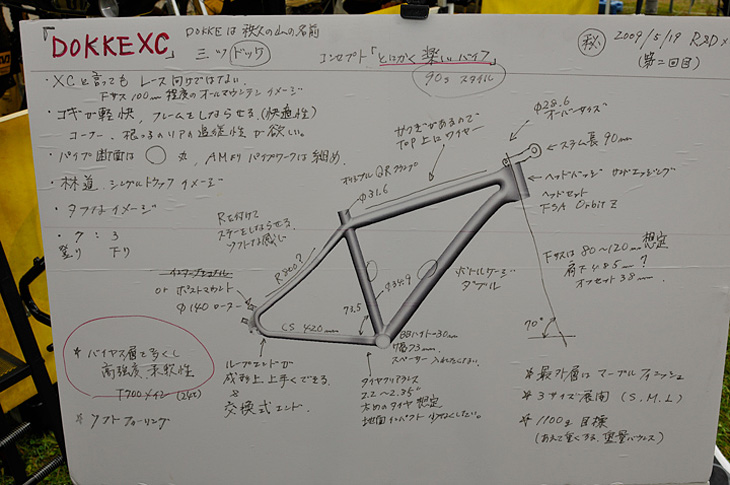 「DOKKE XC」
DOKKEは秩父の山の名前
三ツドッケ
コンセプト「とにかく楽しいバイク」
90s スタイル
秋 2009/5/19 R&D
(第二回目)
・XCと言っても レース向けではない.
Fサス 100mm 程度のオールマウンテンイメージ
・コギが軽快, フレームをしならせる.(快適性)
コーナー, 根っこのリアの追従性が欲しい。
・パイプ断面は ○ 丸, AMよりパイプワークは細め.
・林道, シングルトラック イメージ
・タフなイメージ
・7 : 3
登り 下り
Rを付けて
ステーをしならせる.
ソフトな感じ
オリジナル QR クランプ
φ31.6
サンプがあるので
TOP 上にワイヤー
φ28.6
オーバーサイズ
ステム長 90mm
ヘッドバッジ
ヘッドセット
FSA Orbit Z
Fサスは 80〜120mm 想定
オフセット 38mm.
70°
R800?
or ポストマウント
φ140 ローター
φ34.9
ボトルケージ
ダブル
73.5
CS 420mm
幅73mm.
スペーサー入れたくない.
ループエンドが
成型上 上手くできる.
交換式エンド.
タイヤクリアランス
2.2〜2.35"
太めのタイヤ想定
地面インパクト 少なくしたい。
* バイアス層で多くし
高強度, 柔軟性
T700メイン (24t)
* ソフトフィーリング
* 最外層はマーブルフィニッシュ
* 3サイズ展開 (S.M.L)
* 1100g 目標
(あえて軽くする, 重量バランス)